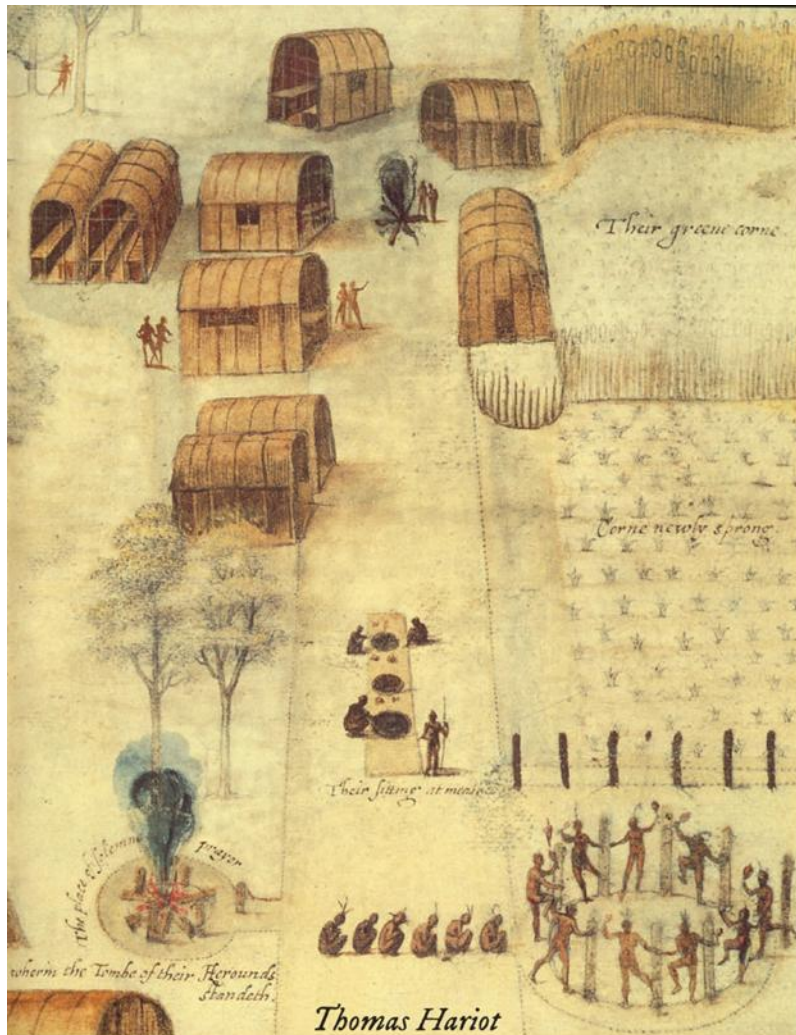 Their greene corne.
Corne newly sprong.
Their sitting at meate.
The place of solemne prayer
wherin the Tombe of their Herounds
standeth.
Thomas Hariot